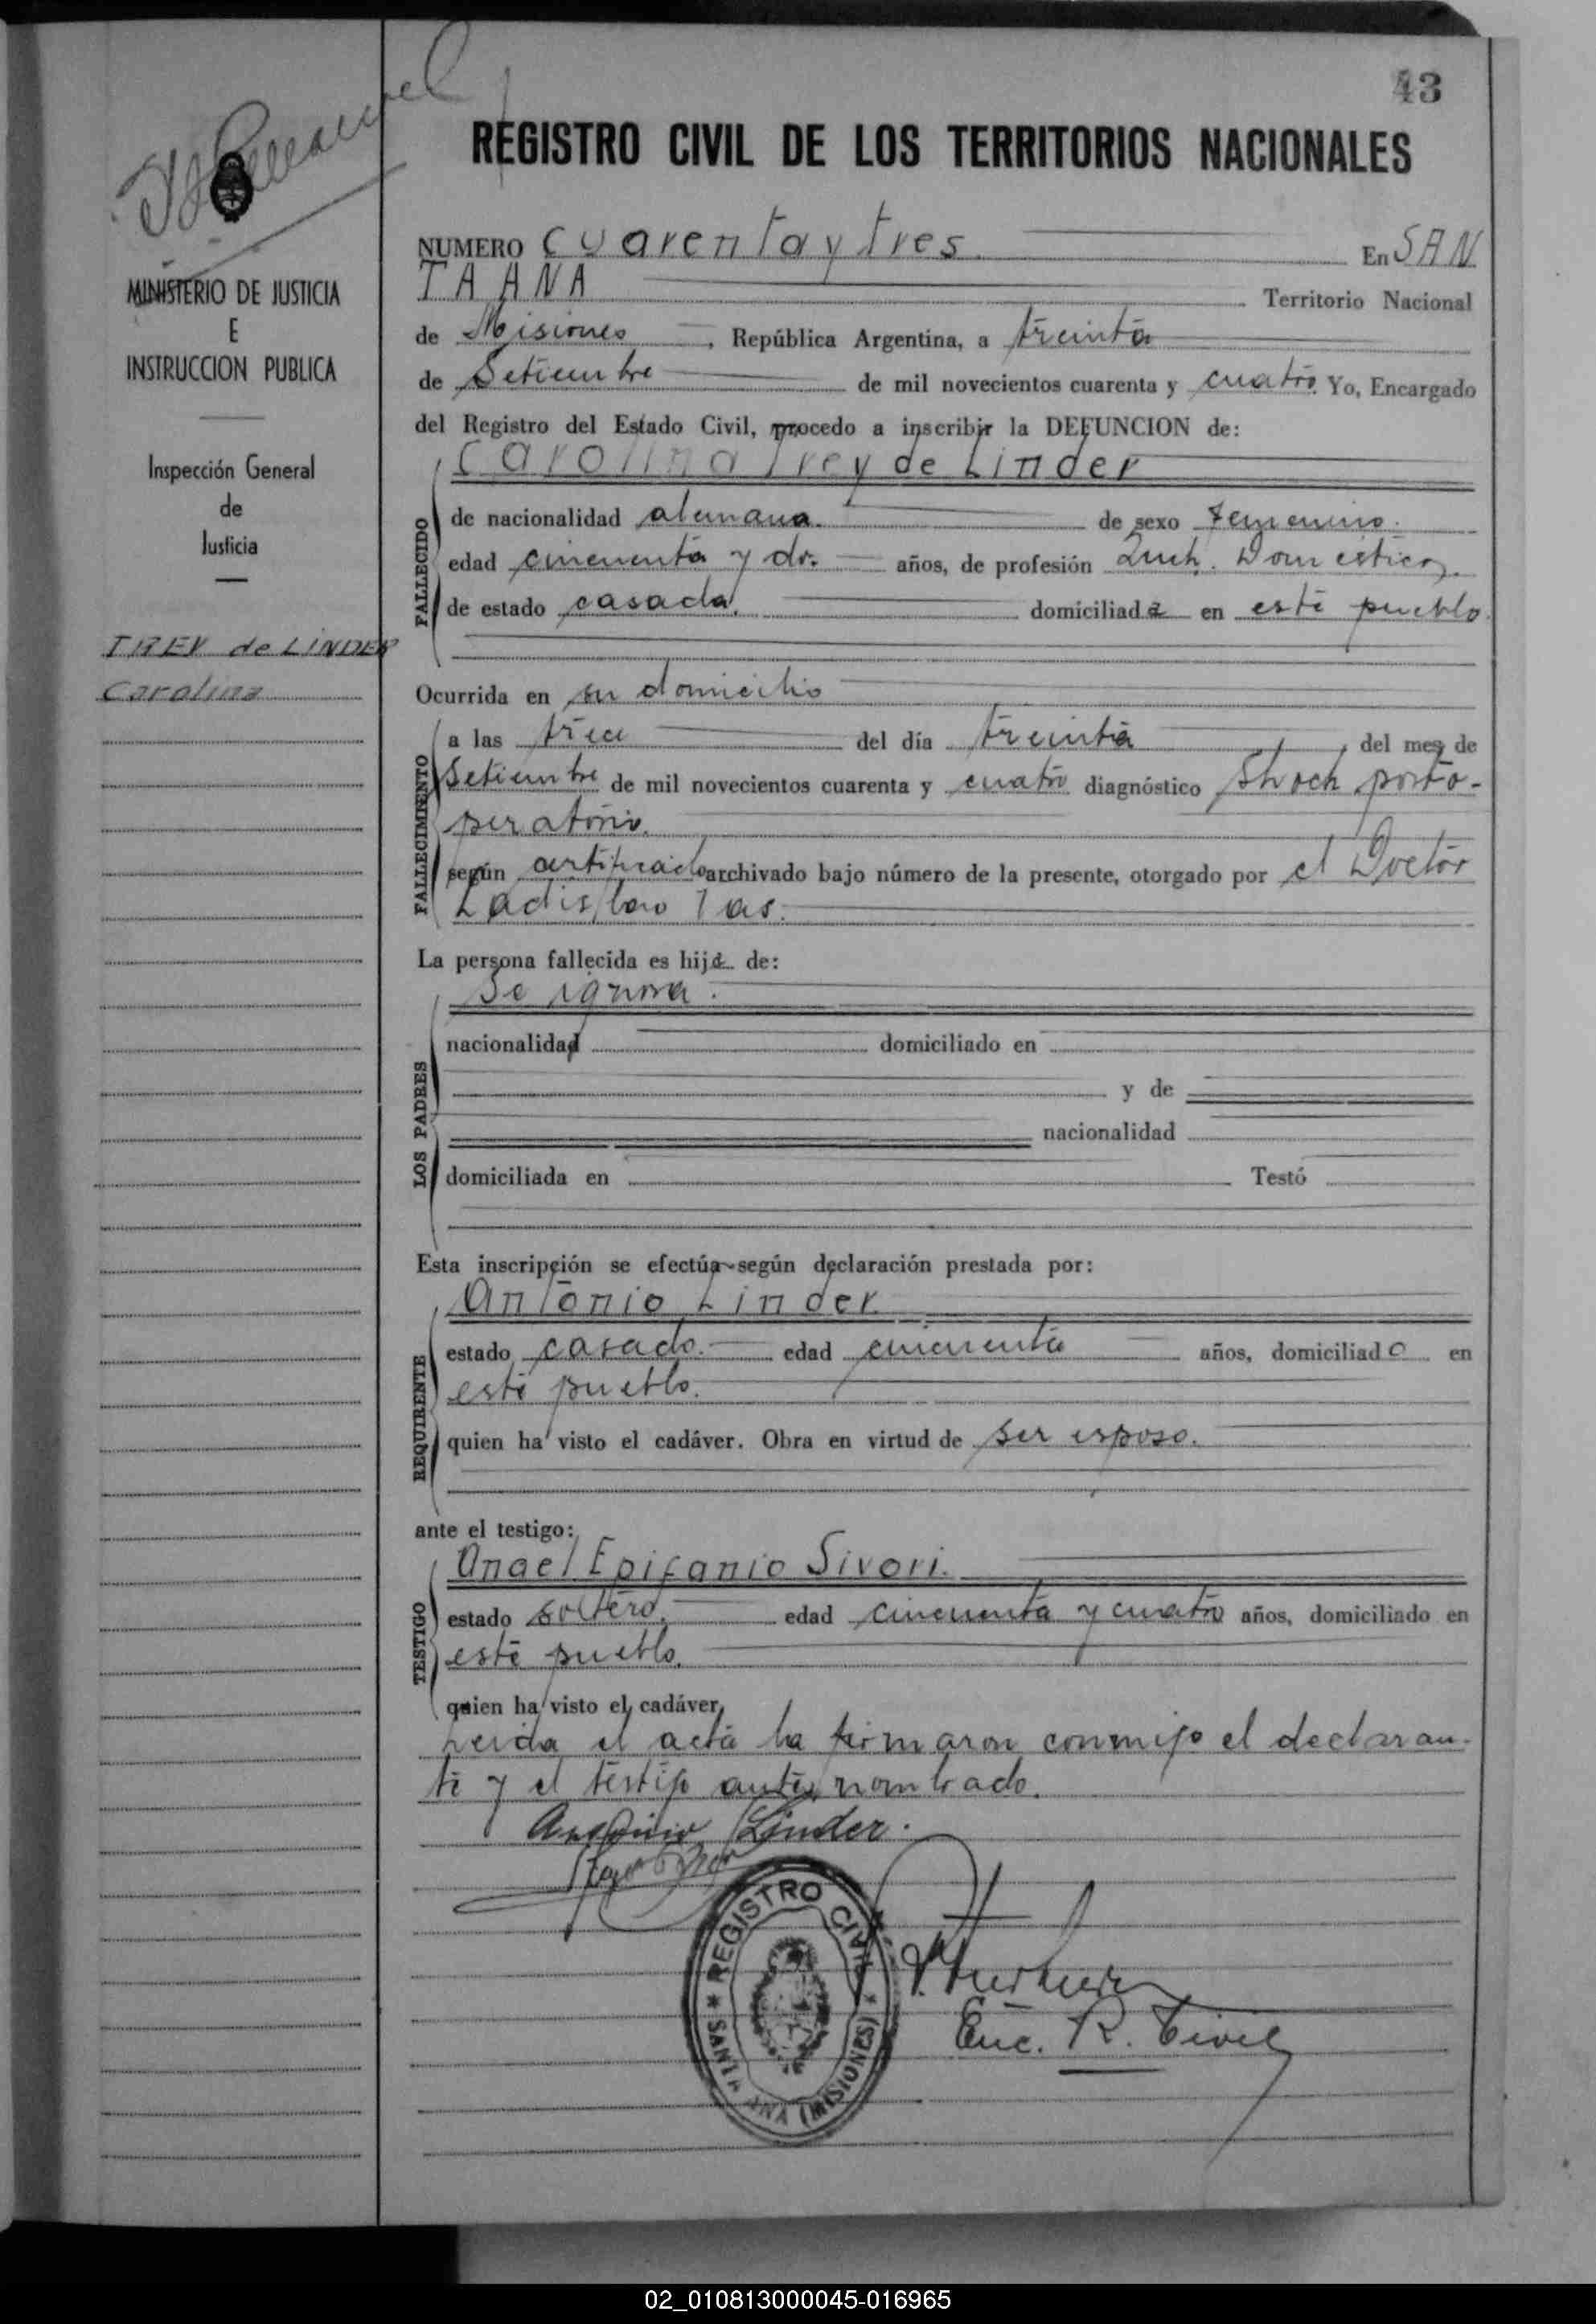 43
REGISTRO CIVIL DE LOS TERRITORIOS NACIONALES
MINISTERIO DE JUSTICIA
E
INSTRUCCION PUBLICA
Inspección General
de
Justicia
TREY de LINDER
Carolina
NUMERO cuarenta y tres En SAN
TA ANA Territorio Nacional
de Misiones, República Argentina, a treinta
de Setiembre de mil novecientos cuarenta y cuatro Yo, Encargado
del Registro del Estado Civil, procedo a inscribir la DEFUNCION de:
Carolina Trey de Linder
FALLECIDO
de nacionalidad alemana. de sexo Femenino.
edad cincuenta y dos años, de profesión Queh. Domesticos.
de estado casada. domiciliada en este pueblo.
Ocurrida en su domicilio
FALLECIMIENTO
a las trece del día treinta, del mes de
Setiembre de mil novecientos cuarenta y cuatro diagnóstico Shock posto-
peratorio.
según certificado archivado bajo número de la presente, otorgado por el Doctor
Ladislao
La persona fallecida es hija de:
Se ignora.
LOS PADRES
nacionalidad domiciliado en
y de
nacionalidad
domiciliada en Testó
Esta inscripción se efectúa según declaración prestada por:
Antonio Linder.
REQUIRENTE
estado casado. edad cincuenta años, domiciliado en
este pueblo.
quien ha visto el cadáver. Obra en virtud de ser esposo.
ante el testigo:
Angel Epifanio Sivori.
TESTIGO
estado soltero. edad cincuenta y cuatro años, domiciliado en
este pueblo.
quien ha visto el cadáver,
Leida el acta la firmaron conmigo el declaran-
te y el testigo antes nombrado.
Antonio Linder.
REGISTRO CIVIL * SANTA ANA (MISIONES) *
Enc. R. Civil
02_010813000045-016965